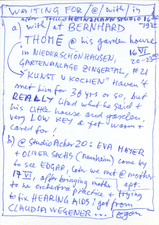 WAITING FOR/@/with/in
a) with/t BERNHARD
THOME @ his garden house
in NIEDERSCHÖNHAUSEN,
GARTENANLAGE ZINGERTAL, #21
"KUNST U KOCHEN" Haven't
met him for 30 yrs or so, but
REALLY glad what he said &
his LITTLE house and garden.
very LOW KEY & yet warm &
cared for!
b) @ Studio Acker 20: EVA MEYER
+ OLIVER SACHS (Mannheim) come by
to see EDGAR, later we met @ mother's
17 VI, after bringing maths
to no orchestra practice & trying
to fix HEARING AIDS I got from
CLAUDIA WEGENER...